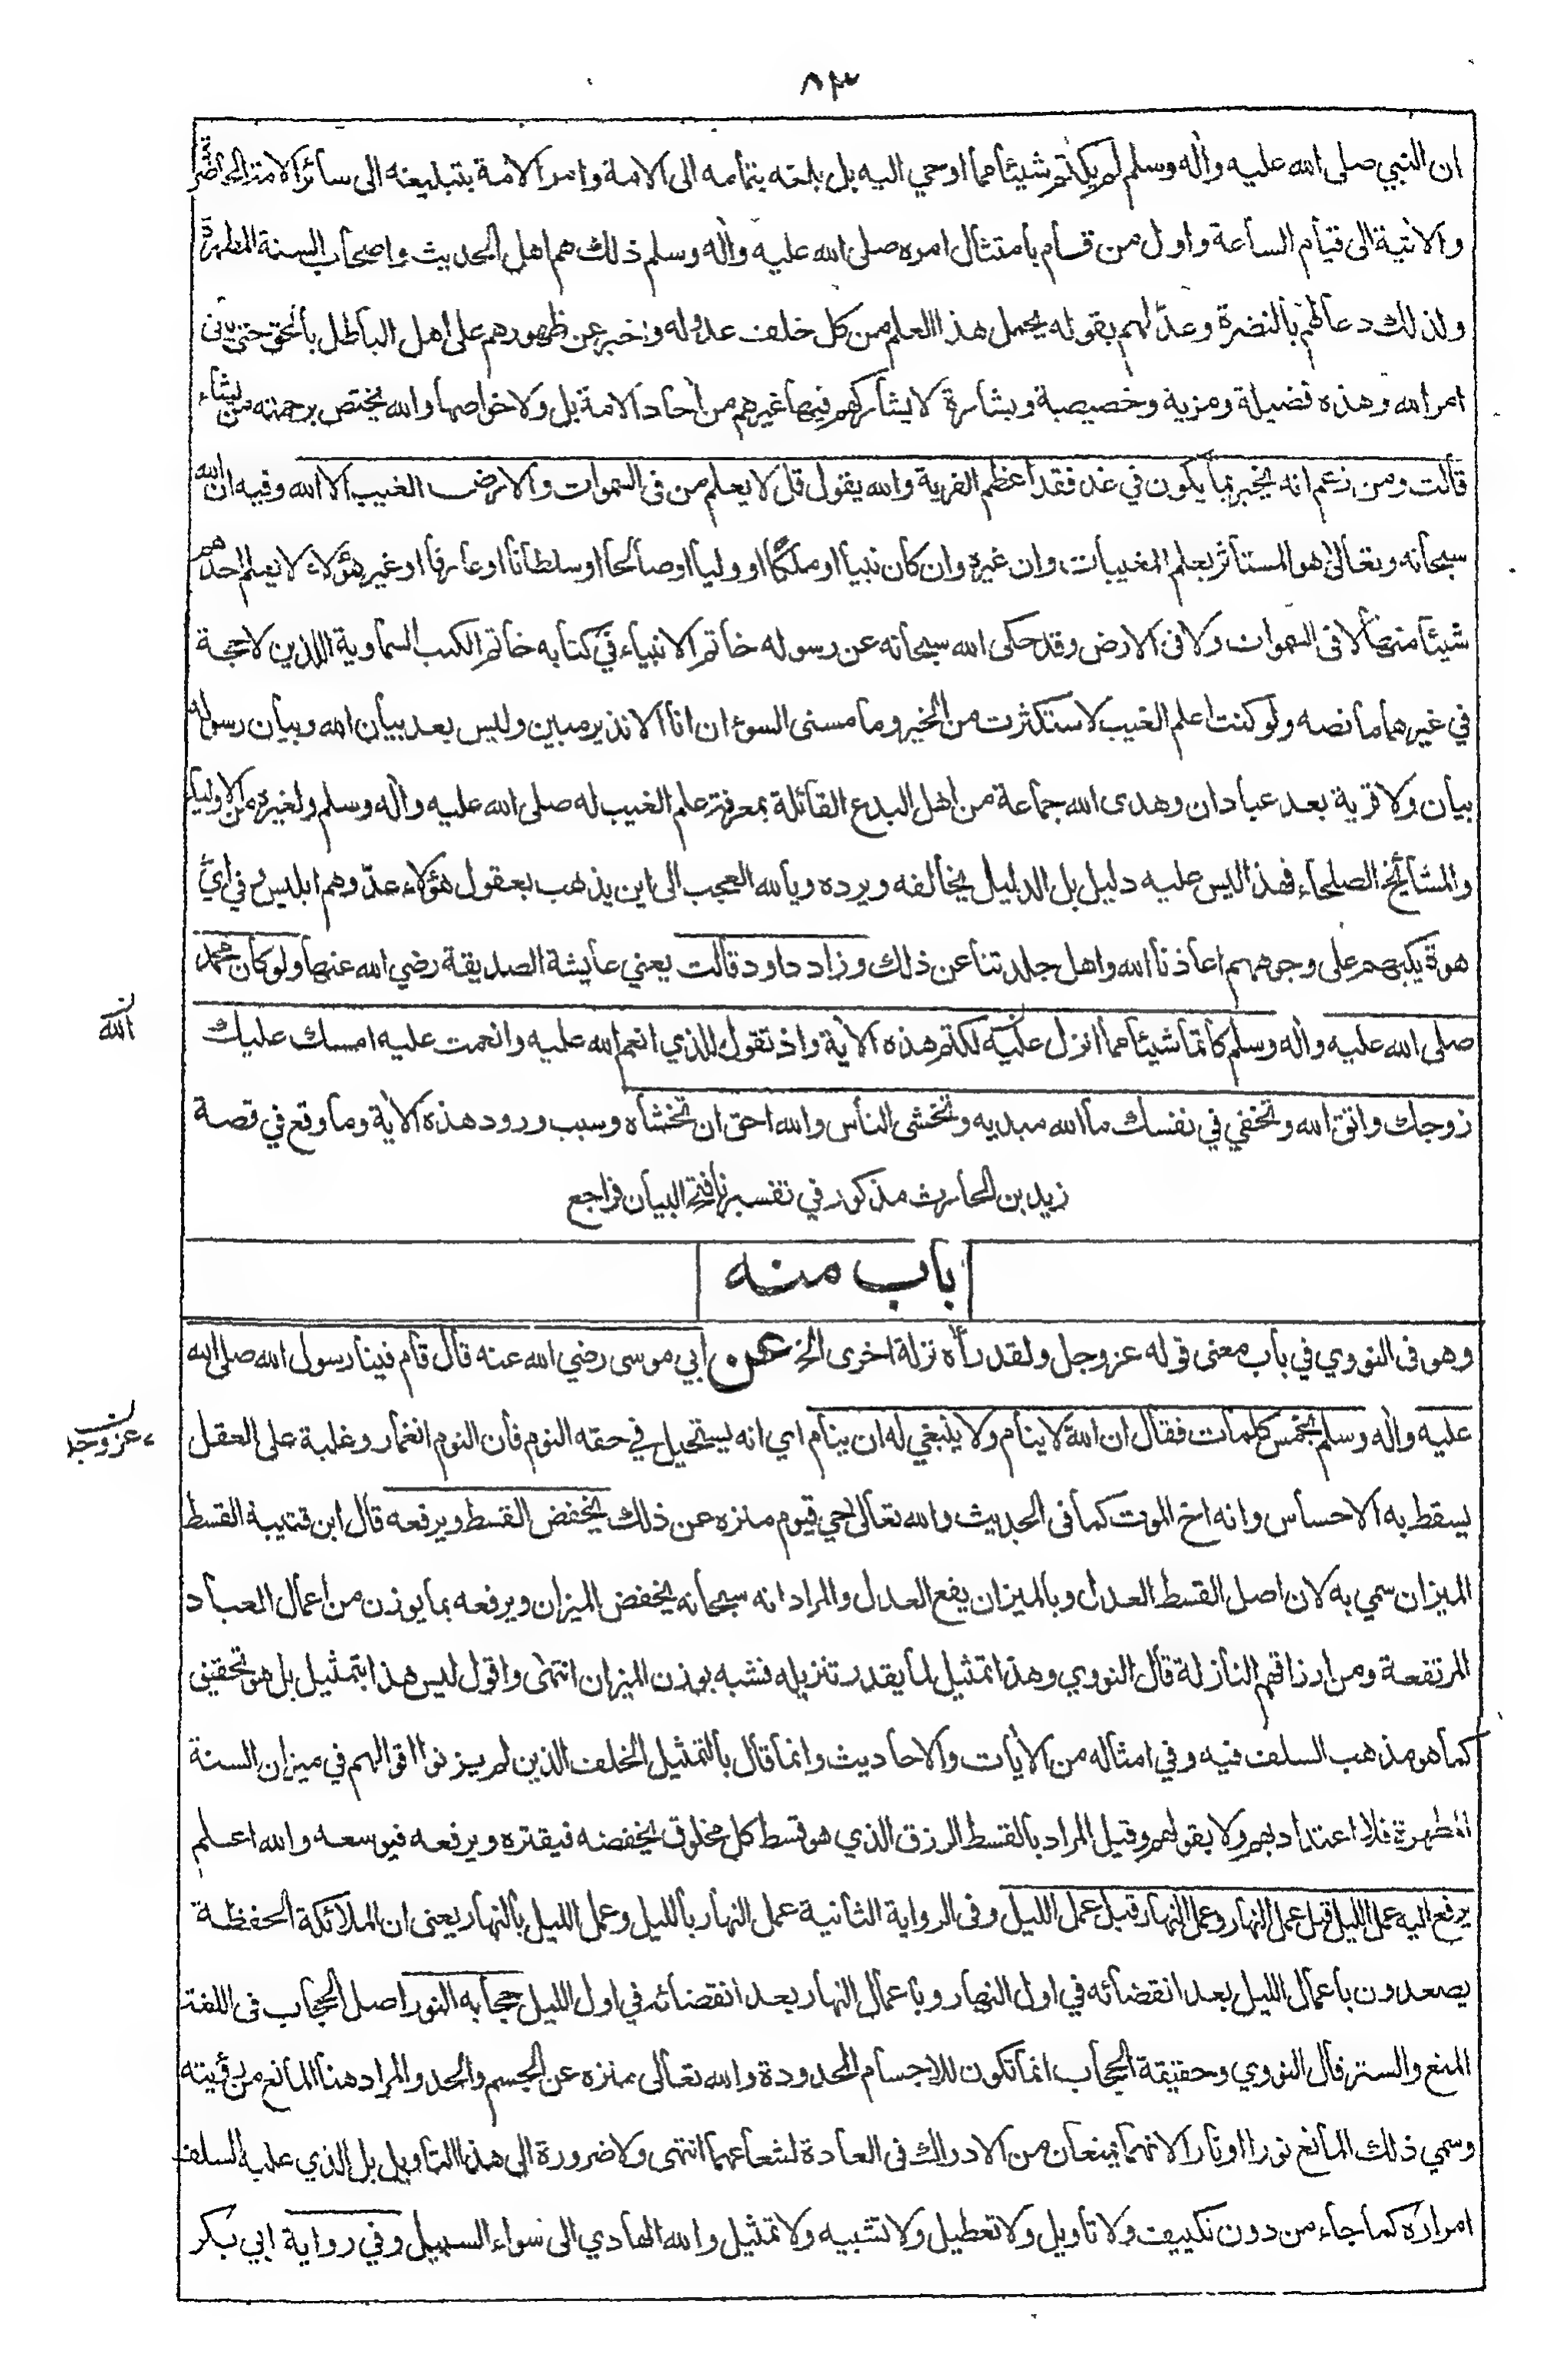 ٨٣
ان النبي صلى الله عليه واٰله وسلم لم يكتم شيئا مما اوحي اليه بل بلغه بتمامه الى الامة وامر الامة بتبليغه الى سائر الامة الحاضرة
والاٰتية الى قيام الساعة واول من قام بامتثال امره صلى الله عليه واٰله وسلم ذلك هم اهل الحديث واصحاب السنة المطهرة
ولذلك دعا لهم بالنضرة وعدّلهم بقوله يحمل هذا العلم من كل خلف عدوله واخبر عن ظهورهم على اهل الباطل بالحق حتى ياتي
امر الله وهذه فضيلة ومزية وخصيصة وبشارة لا يشاركهم فيها غيرهم من اٰحاد الامة بل ولا خواصها والله يختص برحمته من يشاء
قالت ومن زعم انه يخبر بما يكون في غد فقد اعظم الفرية والله يقول قل لا يعلم من فى السموات والارض الغيب الا الله وفيه ان الله
سبحانه وتعالى هو المستاثر بعلم المغيبات، وان غيره وان كان نبيا او ملكًا او وليا او صالحا او سلطانا او عارفا او غير هؤلاء لا يعلم احدهم
شيئا منها لا فى السموات ولا فى الارض وقد حكى الله سبحانه عن رسوله خاتم الانبياء في كتابه خاتم الكتب السماوية اللذين لا حجة
في غيرهما ما نصه ولو كنت اعلم الغيب لاستكثرت من الخير وما مسنى السوء ان انا الا نذير مبين وليس بعد بيان الله وبيان رسوله
بيان ولا قرية بعد عبادان وهدى الله جماعة من اهل البدع القائلة بمعرفة علم الغيب له صلى الله عليه واٰله وسلم ولغيره من الاولياء
والمشائخ الصلحاء فهذا ليس عليه دليل بل الدليل يخالفه ويرده ويالله العجب الى اين يذهب بعقول هؤلاء عدّوهم ابليس وفي ايّ
هوة يكبهم على وجوههم اعاذنا الله واهل جلدتنا عن ذلك وزاد داود قالت يعني عايشة الصديقة رضي الله عنها ولو كان محمد
صلى الله عليه واٰله وسلم كاتما شيئا مما انزل عليه لكتم هذه الاٰية واذ تقول للذي انعم الله عليه وانعمت عليه امسك عليك
ن
الله
زوجك واتق الله وتخفي في نفسك ما الله مبديه وتخشى الناس والله احق ان تخشاه وسبب ورود هذه الاٰية وما وقع في قصة
زيد بن الحارث مذكور في تفسيرنا فتح البيان فراجع
باب منه
وهو فى النووي في باب معنى قوله عز وجل ولقد راٰه نزلة اخرى الخ عن ابي موسى رضي الله عنه قال قام فينا رسول الله صلى الله
عليه واٰله وسلم بخمس كلمات فقال ان الله لا ينام ولا ينبغي له ان ينام اي انه يستحيل في حقه النوم فان النوم انغمار وغلبة على العقل
ن
عز وجل
يسقط به الاحساس وانه اخ الموت كما فى الحديث والله تعالى حي قيوم منزه عن ذلك يخفض القسط ويرفعه قال ابن قتيبة القسط
الميزان سمي به لان اصل القسط العدل وبالميزان يقع العدل والمراد انه سبحانه يخفض الميزان ويرفعه بما يوزن من اعمال العباد
المرتفعة ومن ارزاقهم النازلة قال النووي وهذا تمثيل لما يقدر تنزيله فشبه بوزن الميزان انتهى واقول ليس هذا بتمثيل بل هو تحقيق
كما هو مذهب السلف فيه وفي امثاله من الاٰيات والاحاديث وانما قال بالتمثيل الخلف الذين لم يزنوا اقوالهم في ميزان السنة
المطهرة فلا اعتداد بهم ولا بقولهم وقيل المراد بالقسط الرزق الذي هو قسط كل مخلوق يخفضه فيقتره ويرفعه فيوسعه والله اعلم
يرفع اليه عمل الليل قبل عمل النهار وعمل النهار قبل عمل الليل وفى الرواية الثانية عمل النهار بالليل وعمل الليل بالنهار يعنى ان الملائكة الحفظة
يصعدون باعمال الليل بعد انقضائه في اول النهار وباعمال النهار بعد انقضائه في اول الليل حجابه النور اصل الحجاب فى اللغة
المنع والستر قال النووي وحقيقة الحجاب انما تكون للاجسام المحدودة والله تعالى منزه عن الجسم والحد والمراد هنا المانع من رؤيته
وسمي ذلك المانع نورا او نارا لانهما يمنعان من الادراك فى العادة لشعاعهما انتهى ولا ضرورة الى هذا التاويل بل الذي عليه السلف
امراره كما جاء من دون تكييف ولا تاويل ولا تعطيل ولا تشبيه ولا تمثيل والله الهادي الى سواء السبيل وفي رواية ابي بكر